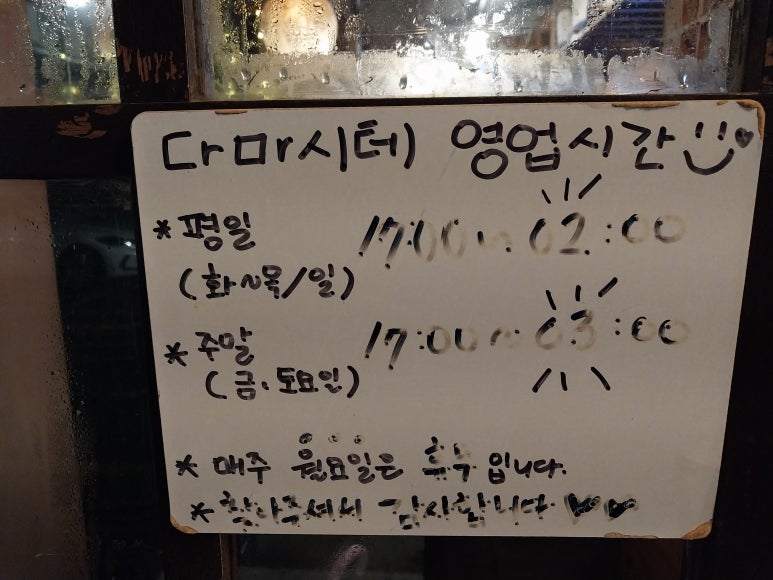 다마시테 영업시간
* 평일 17:00 ~ 02:00
(화~목/일)
* 주말 17:00 ~ 03:00
(금, 토요일)
* 매주 월요일은 휴무 입니다.
* 찾아주셔서 감사합니다 ♥♥